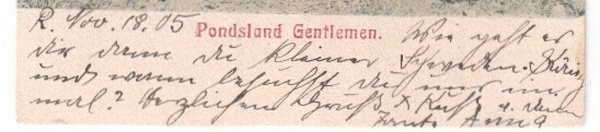 R. Nov. 18. 05
Pondsland Gentlemen.
Wie geht es
dir denn du kleiner Schweden-König
und wann besuchst du uns ein
mal? Herzlichen Gruß & Kuß v. dein
Tante Anna